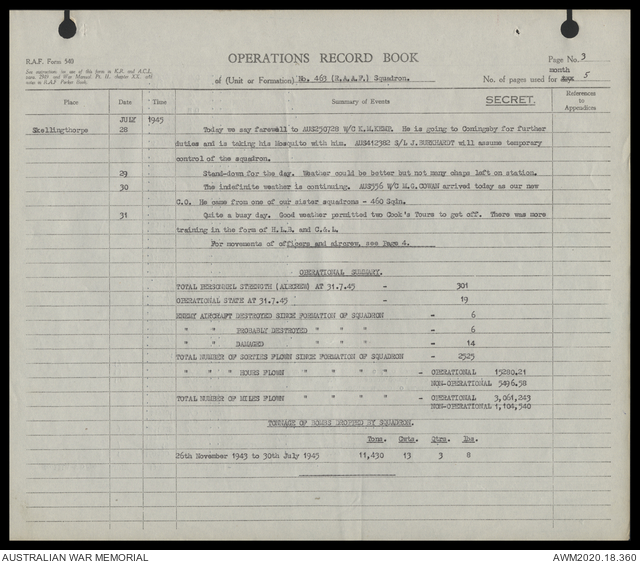 R.A.F. Form 540
OPERATIONS RECORD BOOK
Page No. 3
See instructions for use of this form in K.R. and A.C.I.,
para. 2349 and War Manual, Pt. II, chapter XX, and
notes in R.A.F. Pocket Book.
of (Unit or Formation) No. 463 (R.A.A.F.) Squadron.
month
No. of pages used for day 5
Place Date Time Summary of Events SECRET. References to Appendices
JULY 1945
Skellingthorpe 28 Today we say farewell to AUS250728 W/C K.M.KEMP. He is going to Coningsby for further
duties and is taking his Mosquito with him. AUS412382 S/L J.BURCHARDT will assume temporary
control of the squadron.
29 Stand-down for the day. Weather could be better but not many chaps left on station.
30 The indefinite weather is continuing. AUS556 W/C M.G.COWAN arrived today as our new
C.O. He came from one of our sister squadrons - 460 Sqdn.
31 Quite a busy day. Good weather permitted two Cook's Tours to get off. There was more
training in the form of H.L.B. and C.& L.
For movements of officers and aircrew, see Page 4.
OPERATIONAL SUMMARY.
TOTAL PERSONNEL STRENGTH (AIRCREW) AT 31.7.45 - 301
OPERATIONAL STATE AT 31.7.45 - 19
ENEMY AIRCRAFT DESTROYED SINCE FORMATION OF SQUADRON - 6
" " PROBABLY DESTROYED " " " - 6
" " DAMAGED " " " - 14
TOTAL NUMBER OF SORTIES FLOWN SINCE FORMATION OF SQUADRON - 2525
" " " HOURS FLOWN " " " - OPERATIONAL 15280.21
NON-OPERATIONAL 5496.58
TOTAL NUMBER OF MILES FLOWN " " " - OPERATIONAL 3,061,243
NON-OPERATIONAL 1,104,540
TONNAGE OF BOMBS DROPPED BY SQUADRON.
Tons. Cwts. Qtrs. Lbs.
26th November 1943 to 30th July 1945 11,430 13 3 8
AUSTRALIAN WAR MEMORIAL
AWM2020.18.360